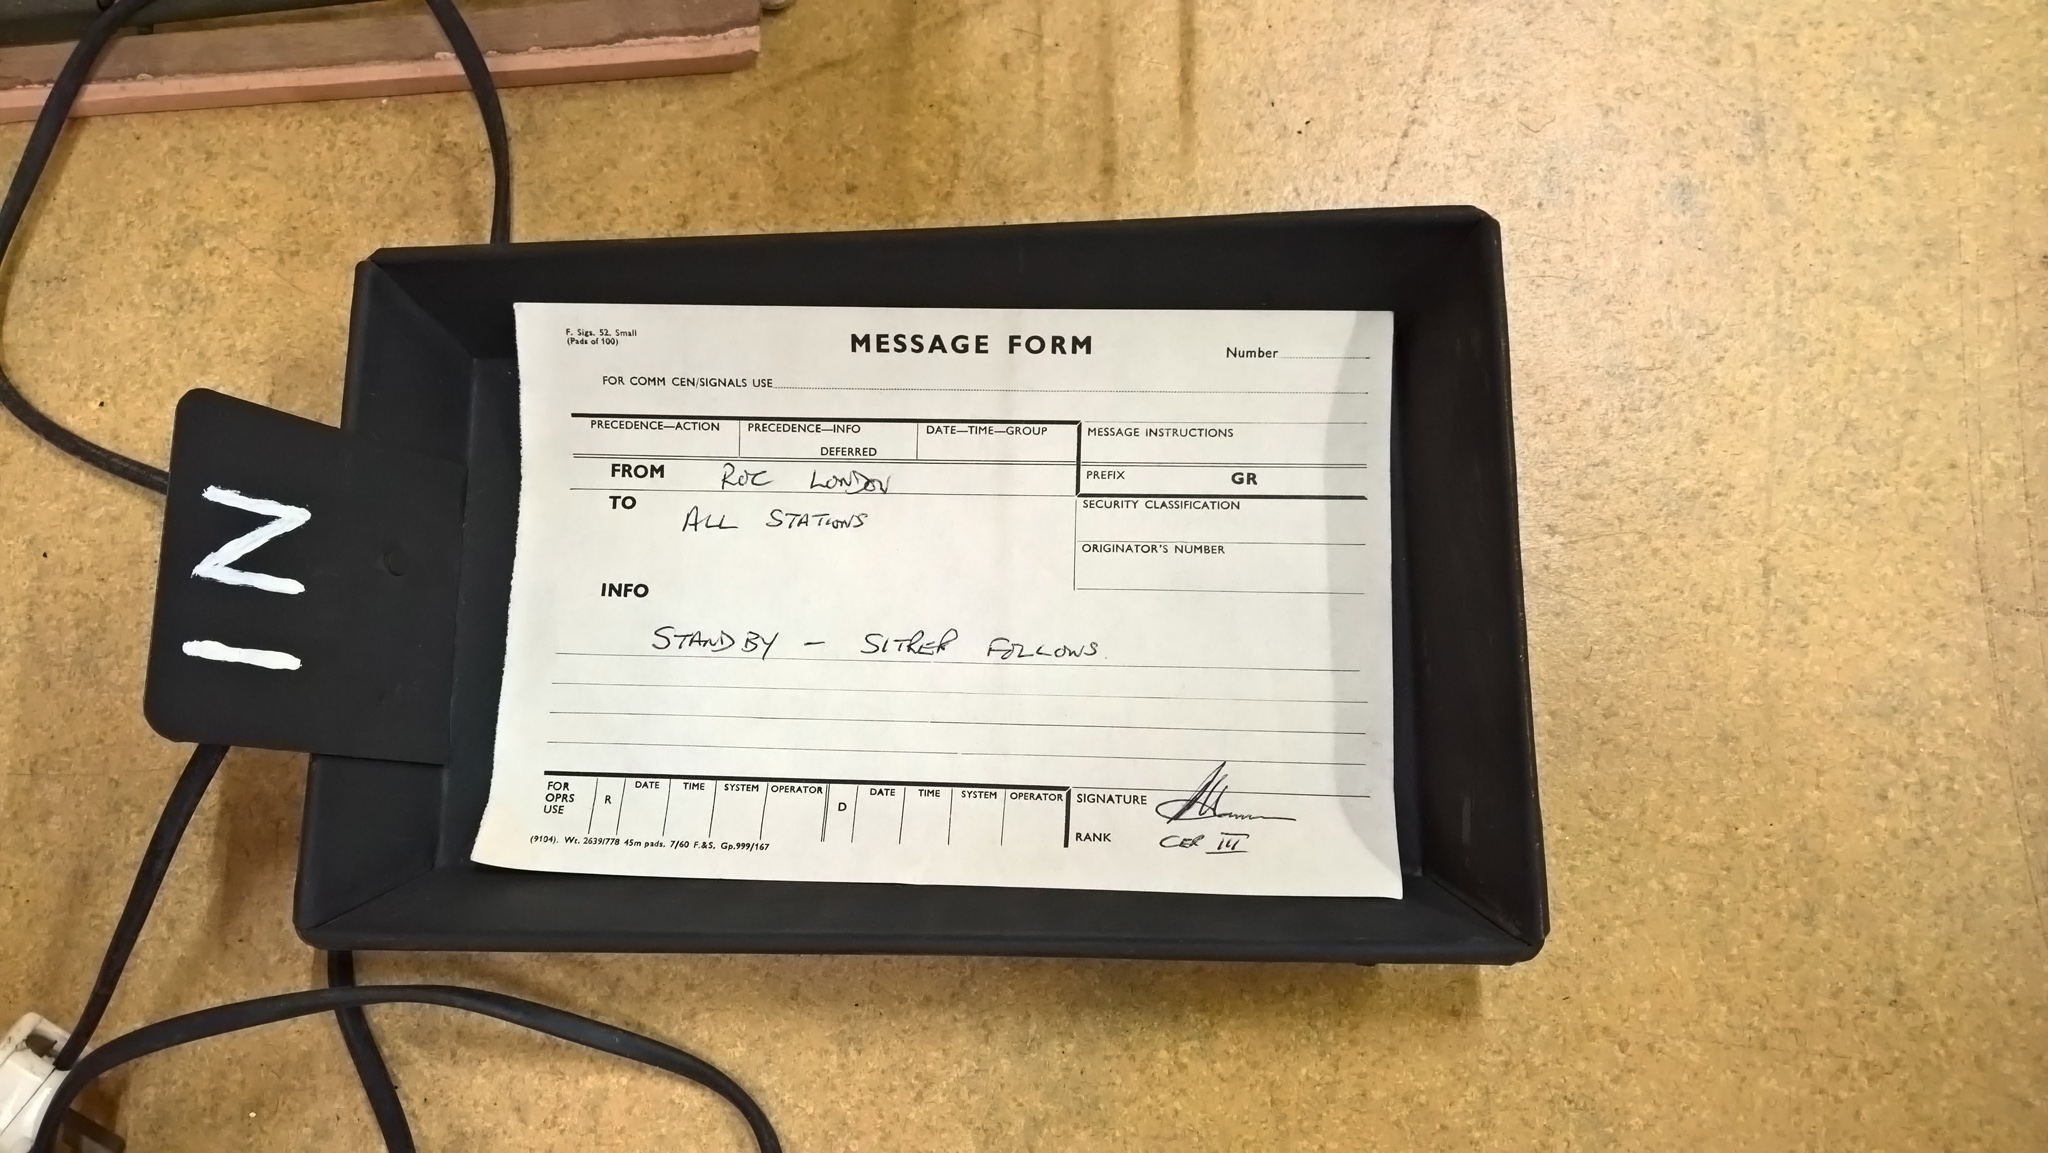 IN
F. Sigs. 52. Small
(Pads of 100)
MESSAGE FORM
Number
FOR COMM CEN/SIGNALS USE
PRECEDENCE—ACTION PRECEDENCE—INFO DATE—TIME—GROUP MESSAGE INSTRUCTIONS
DEFERRED
FROM ROC LONDON PREFIX GR
TO ALL STATIONS SECURITY CLASSIFICATION
ORIGINATOR'S NUMBER
INFO
STANDBY — SITREP FOLLOWS.
FOR OPRS USE R DATE TIME SYSTEM OPERATOR D DATE TIME SYSTEM OPERATOR SIGNATURE
RANK III
(9104). Wt. 2639/778 45m pads. 7/60 F.&S. Gp.999/167